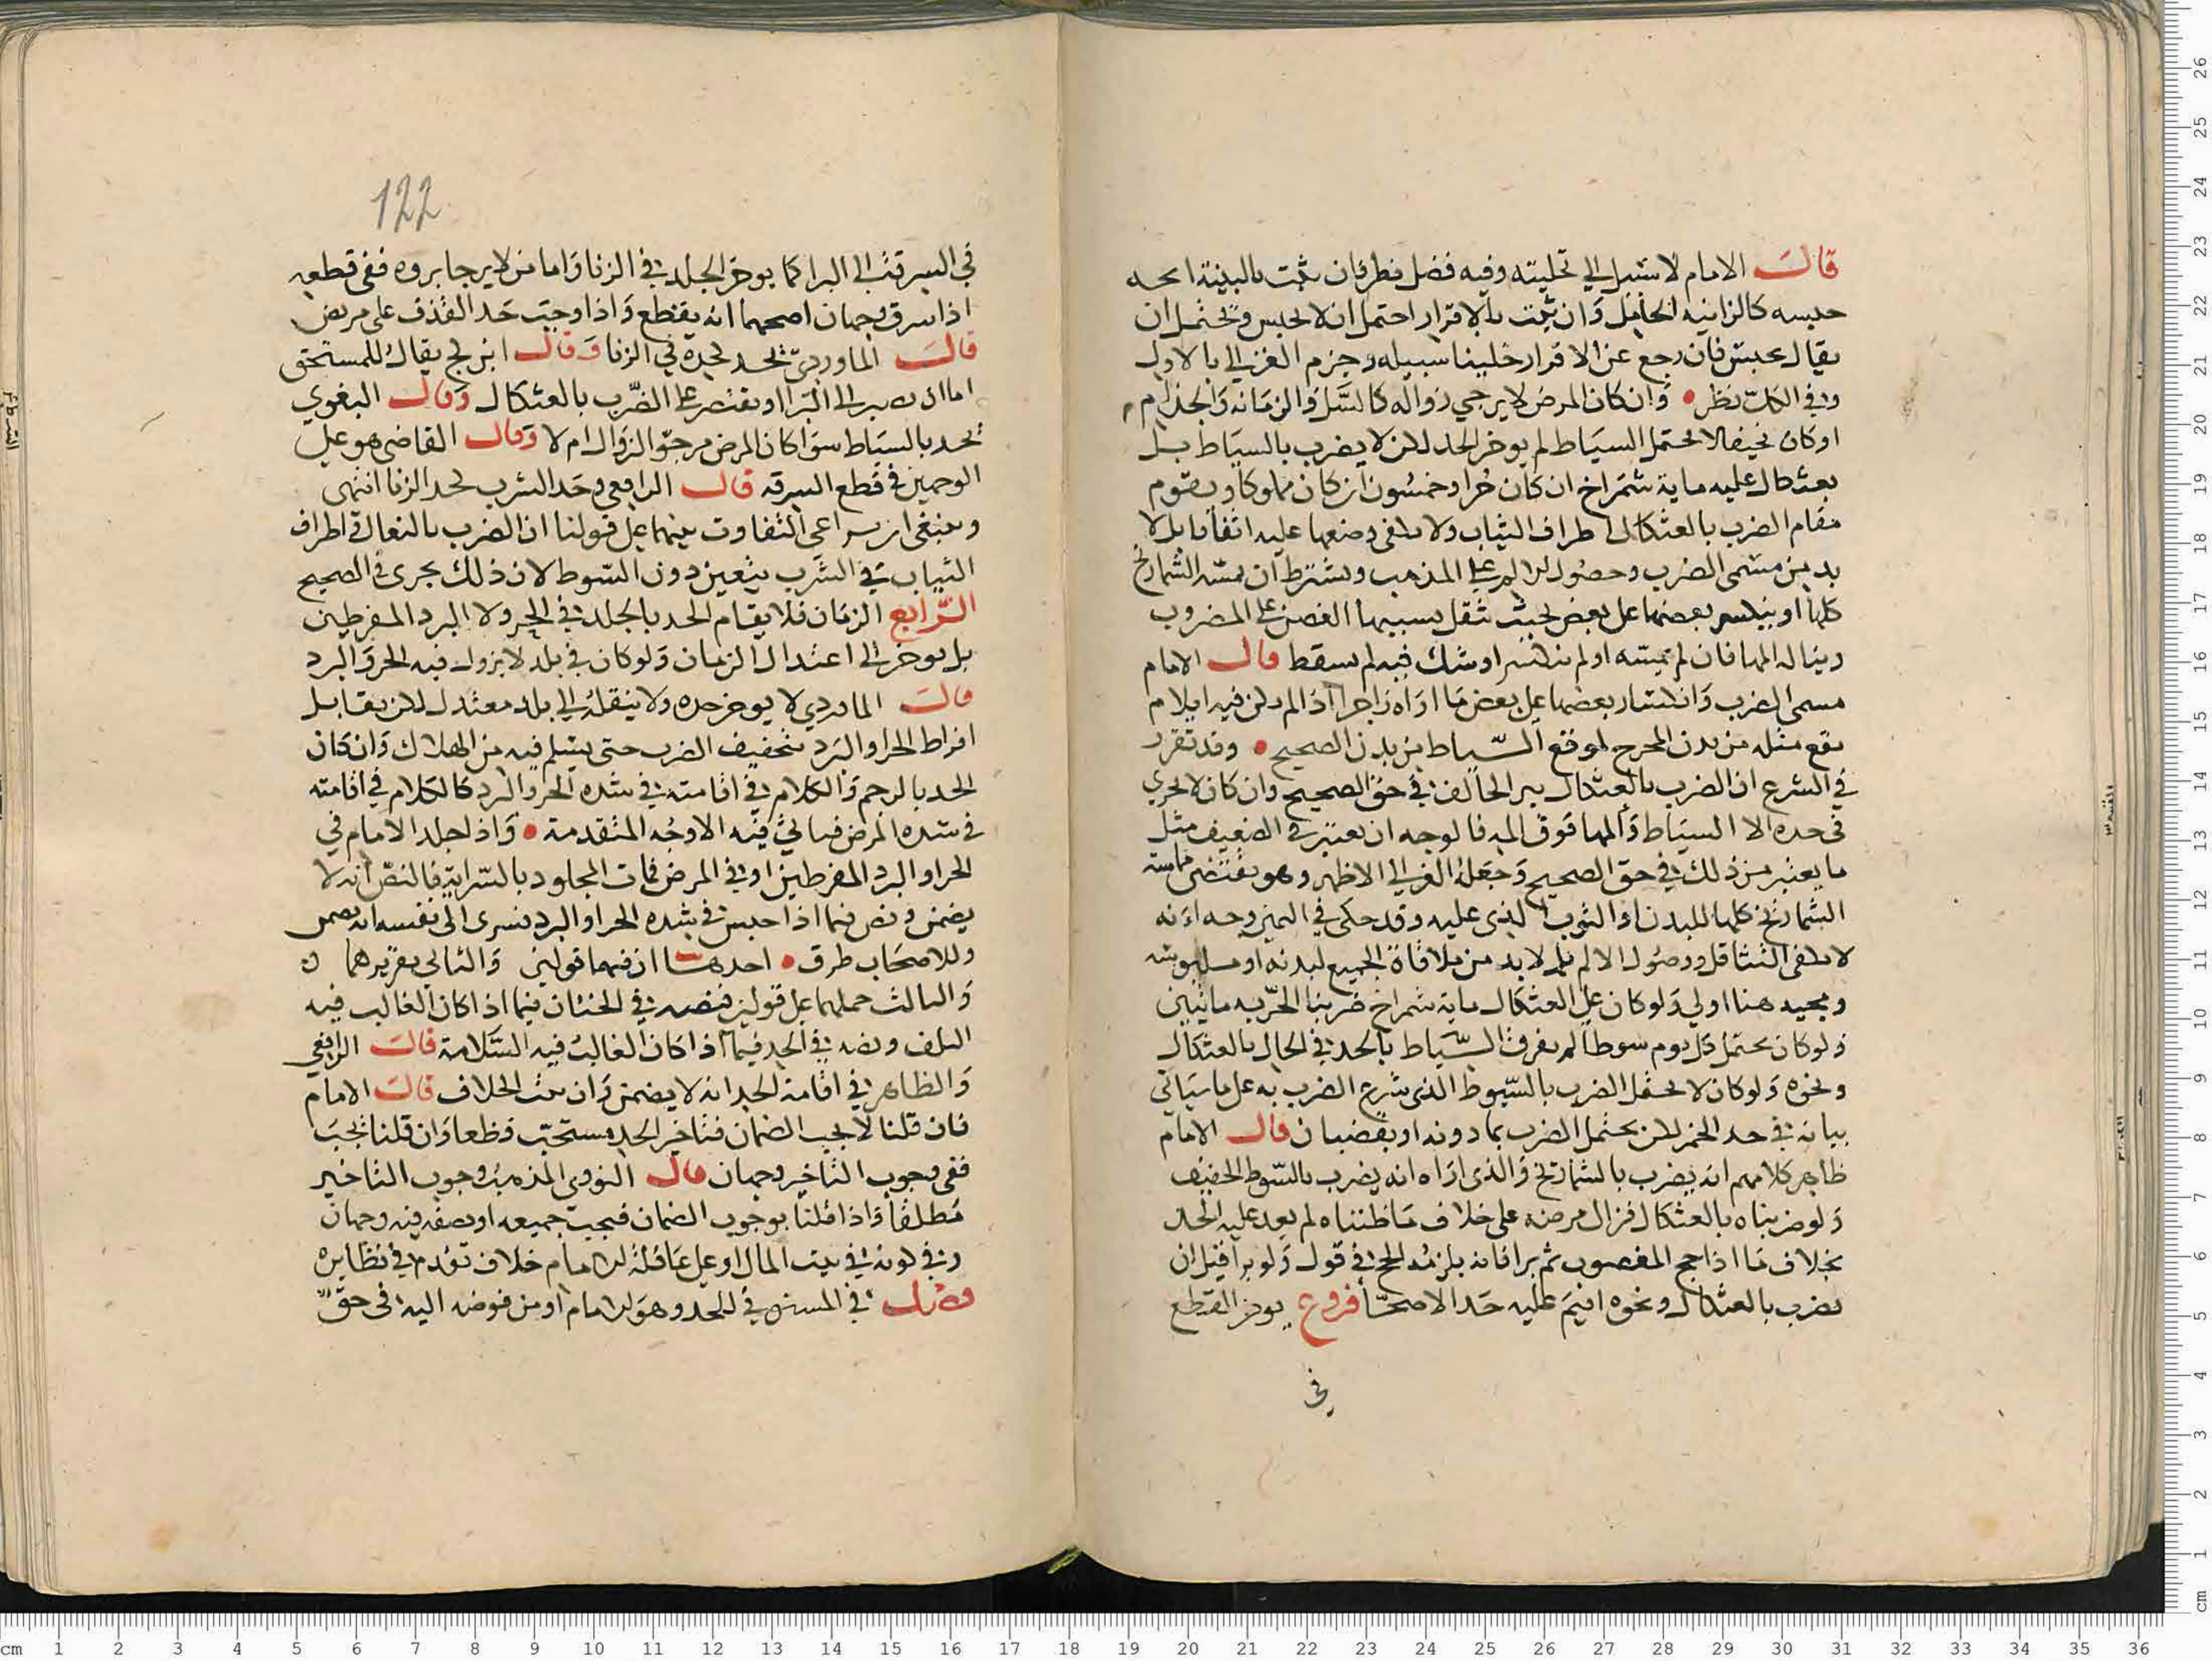 قال الامام لا سبيل الي تخليته وفيه فضل نظر فان ثبت بالبينة اتجه
حبسه كالزانيه الحامل وان ثبت بالاقرار احتمل ان لا يحبس ويحتمل ان
يقال يحبس فان رجع عن الاقرار خلينا سبيله وجزم الغزالي بالاول
وفي الكل نظر وان كان المرض لا يرجي زواله كالسل والزمانه والجذام
اوكان نحيفا لا يحتمل السياط لم يوخر الحد لكن لا يضرب بالسياط بل
بعثكال عليه ماية شمراخ ان كان حرا وخمسون ان كان مملوكا ويقوم
مقام الضرب بالعثكال اطراف الثياب ولا يكفي وضعها عليه اتفاقا بل لا
بد من مسمى الضرب وحصول الالم على المذهب ويشترط ان تمسه الشماريخ
كلها او ينكبس بعضها على بعض بحيث تثقل بسببها الغصن على المضروب
ويناله المها فان لم تمسه او لم تنكبس او شك فيه لم يسقط قال الامام
مسمى الضرب وانكباس بعضها على بعض ما اراه زاجرا اذا لم يكن فيه ايلام
يقع مثله من بدن المحرج لموقع السياط من بدن الصحيح وقد تقرر
في الشرع ان الضرب بالعثكال يبر الحالف في حق الصحيح وان كان لا يجري
في حده الا السياط والمها فوق المه فالوجه ان يعتبر في الضعيف مثل
ما يعتبر من ذلك في حق الصحيح وجعله الغزالي الاظهر وهو يقتضي مماسة
الشماريخ كلها للبدن او الثوب الذي عليه وقد حكى في اليمين وجه انه
لا يكفي التثاقل ووصول الالم بل لا بد من ملاقاة الجميع لبدنه او ملبوسه
ومجيه هنا اولي ولو كان على العثكال ماية شمراخ ضربنا الحر به مايتين
ولو كان يحتمل كل يوم سوطا لم يفرق السياط بالحد في الحال بالعثكال
ونحوه ولو كان لا يحتمل الضرب بالسوط الذي شرع الضرب به على ما سياتي
بيانه في حد الخمر لكن يحتمل الضرب بما دونه او بقضبان قال الامام
ظاهر كلامهم انه يضرب بالشماريخ والذي اراه انه يضرب بالسوط الخفيف
ولو ضربناه بالعثكال فزال مرضه على خلاف ما ظنناه لم يعد عليه الحد
بخلاف ما اذا حج المغصوب ثم برا فانه يلزمه الحج في قول ولو برا قبل ان
يضرب بالعثكال ونحوه اقيم عليه حد الاصحا فروع يوخر القطع
في
122
في السرقة الى البرا كما يوخر الجلد في الزنا واما من لا يرجا بروه ففي قطعه
اذا سرق وجهان اصحهما انه يقطع واذا وجب حد القذف على مريض
قال الماوردي يحد كحده في الزنا وقال ابن كج يقال للمستحق
اما ان تصبر الى البرا او تقتصر على الضرب بالعثكال وقال البغوي
يحد بالسياط سوا كان المرض مرجو الزوال ام لا وقال القاضي هو على
الوجهين في قطع السرقه قال الرافعي وحد الشرب كحد الزنا انتهى
وينبغي ان يراعى التفاوت بينهما على قولنا ان الضرب بالنعال واطراف
الثياب في الشرب يتعين دون السوط لان ذلك يجرى في الصحيح
الرابع الزمان فلا يقام الحد بالجلد في الحر ولا البرد المفرطين
بل يوخر الى اعتدال الزمان ولو كان في بلد لا يزول فيه الحر والبرد
قال الماوردي لا يوخر حده ولا ينقل الي بلد معتدل لكن يقابل
افراط الحر او البرد بتخفيف الضرب حتى يسلم فيه من الهلاك وان كان
الحد بالرجم والكلام في اقامته في شدة الحر والبرد كالكلام في اقامته
في شدة المرض فياتي فيه الاوجه المتقدمة واذا جلد الامام في
الحر او البرد المفرطين او في المرض فمات المجلود بالسراية فالنص انه لا
يضمن ونص فيما اذا حبس في شدة الحر او البرد فسرى الى نفسه انه يضمن
وللاصحاب طرق احدها ان فيهما قولين والثاني تقريرهما
والثالث حملهما على قولين فنصه في الختان فيما اذا كان الغالب فيه
التلف ونصه في الحد فيما اذا كان الغالب فيه السلامة قال الرافعي
والظاهر في اقامة الحد انه لا يضمن وان ثبت الخلاف قال الامام
فان قلنا لا يجب الضمان فتاخير الحد مستحب قطعا وان قلنا يجب
ففي وجوب التاخير وجهان قال النووي المذهب وجوب التاخير
مطلقا واذا قلنا بوجوب الضمان فيجب جميعه او نصفه فيه وجهان
وفي كونه في بيت المال او على عاقلة الامام خلاف تقدم في نظايره
فصل في المستوفي للحد وهو الامام او من فوضه اليه في حق